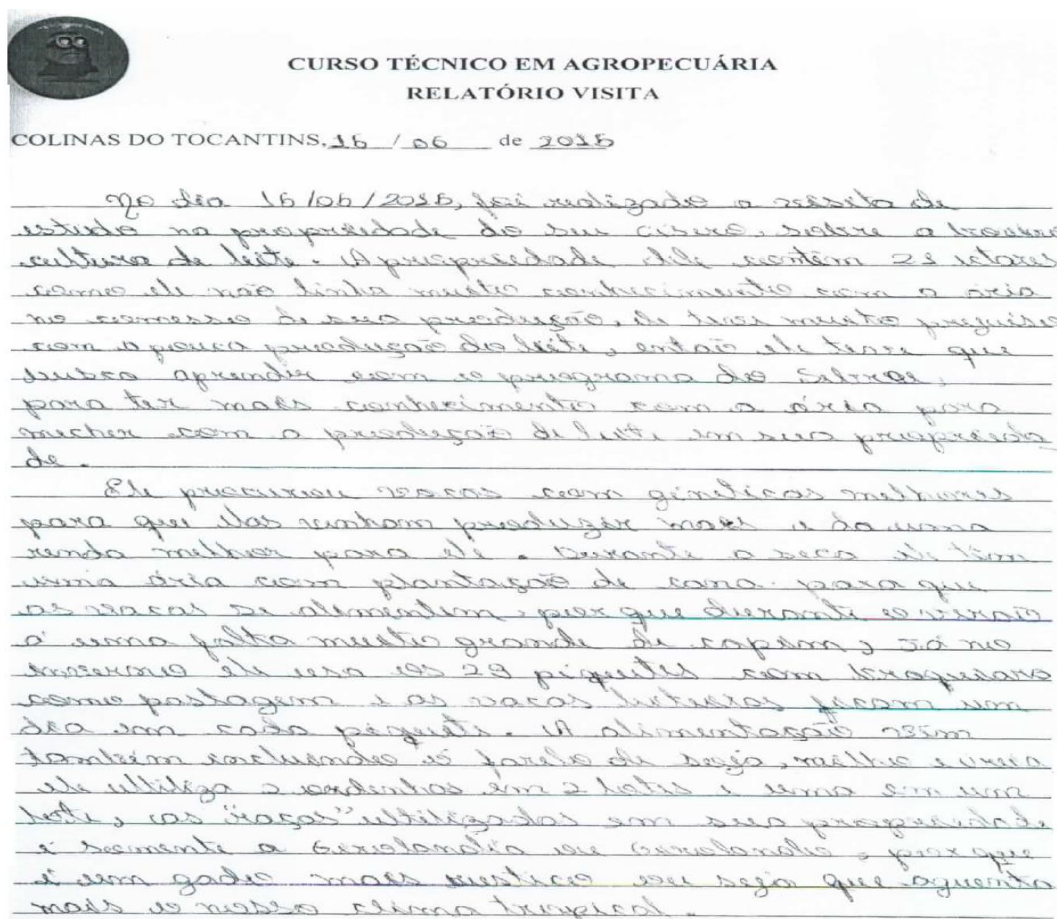 CURSO TÉCNICO EM AGROPECUÁRIA
RELATÓRIO VISITA
COLINAS DO TOCANTINS, 16 / 06 de 2016
No dia 16/06/2016, foi realizado a vissita de
estudo na propriedade do seu cisero, sobre a
cultura de leite. A propriedade dele contêm 21 etares
como ele não tinha muito conhecimento com a ária
no comesso de sua produção, ele teve muito prejuiso
com a pouca produção do leite, então ele teve que
busca aprender com o programa do Sebrae,
para ter mais conhecimento com a ária para
mecher com a produção de leite em sua proprieda
de.
Ele procurou vacas com genéticas melhores
para que elas venham produzir mais e da uma
renda melhor para ele. Durante a seca ele têm
uma ária com plantação de cana para que
as vacas se alimentem, por que durante o verão
a uma falta muito grande de capim, Já no
inverno ele usa os 29 piquetes com braquiara
como pastagem e as vacas leiteiras ficam um
dia em cada piquete. A alimentação vêm
também incluindo o farelo de soja, milho e ureia
ele ultiliza 2 ordenhas em 2 lotes e uma em um
lote, as "raças" ultilizadas em sua propriedade
é somente a Girolandia ou Girolando, por que
é um gado mais rustico ou seja que aguenta
mais o nosso clima tropical.